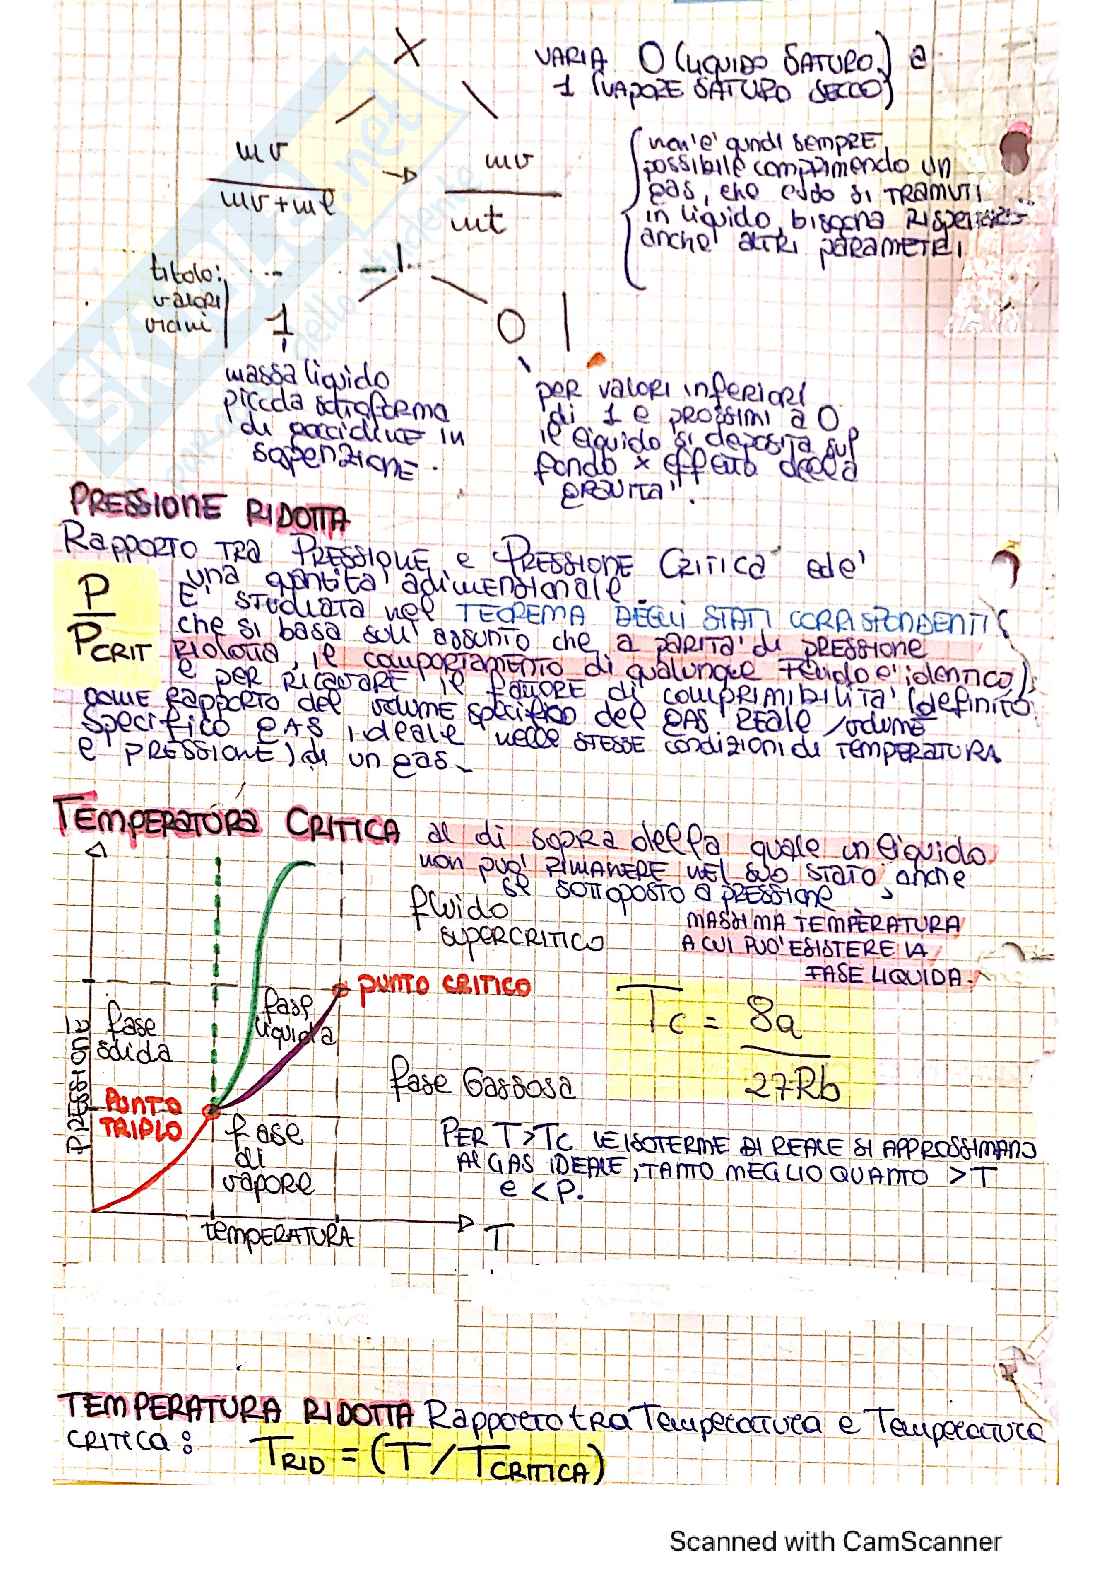 X
VARIA 0 (LIQUIDO SATURO) a
1 (VAPORE SATURO SECCO)
mv
mv+ml
→
mv
mt
non è quindi sempre
possibile comprimendo un
gas, che esso si TRAMUTI
in liquido, bisogna
anche altri parametri
titolo:
valori
vicini
1
0
massa liquido
piccola sottoforma
di goccioline in
sospensione.
per valori inferiori
di 1 e prossimi a 0
il liquido si deposita sul
fondo x effetto della
gravita'.
PRESSIONE RIDOTTA
Rapporto tra Pressione e Pressione Critica ed e'
una quantita' adimensionale.
E' studiata nel TEOREMA DEGLI STATI CORRISPONDENTI (
che si basa sull'assunto che a parita' di pressione
ridotta, il comportamento di qualunque fluido e' identico)
e per ricavare il fattore di comprimibilita' (definito
come rapporto del volume specifico del gas reale/volume
specifico gas ideale nelle stesse condizioni di temperatura
e pressione) di un gas.
P
PCRIT
TEMPERATURA CRITICA al di sopra della quale un liquido
non puo' rimanere nel suo stato, anche
se sottoposto a pressione
MASSIMA TEMPERATURA
A CUI PUO' ESISTERE LA
FASE LIQUIDA.
fluido
supercritico
punto critico
fase
liquida
fase
solida
PRESSIONE
PUNTO
TRIPLO
fase
di
vapore
fase Gassosa
Tc = 8a
27Rb
PER T>Tc LE ISOTERME DI REALE SI APPROSSIMANO
AL GAS IDEALE, TANTO MEGLIO QUANTO > T
e < P.
temperatura
T
TEMPERATURA RIDOTTA Rapporto tra Temperatura e Temperatura
CRITICA: TRID = (T/TCRITICA)
Scanned with CamScanner